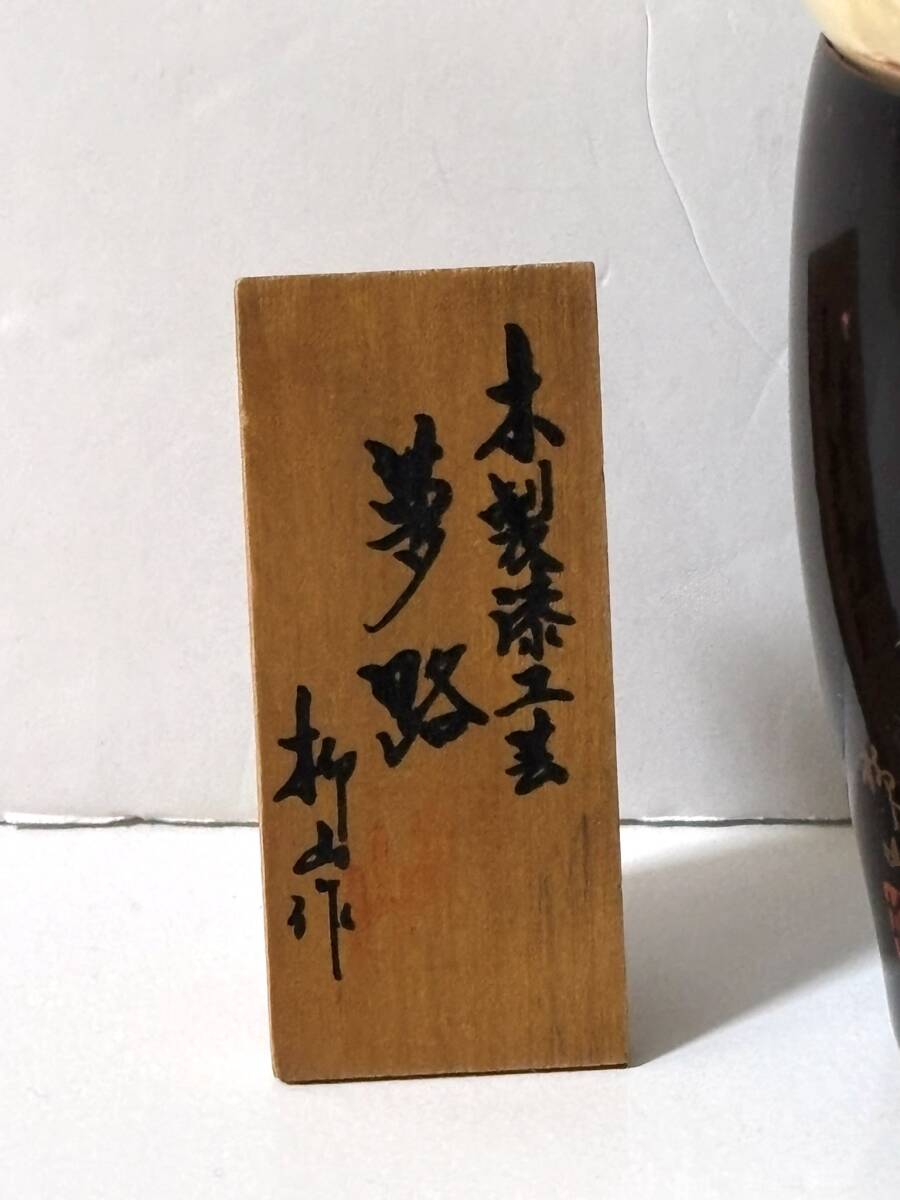 木製漆工芸
夢路
柳山作
柳山